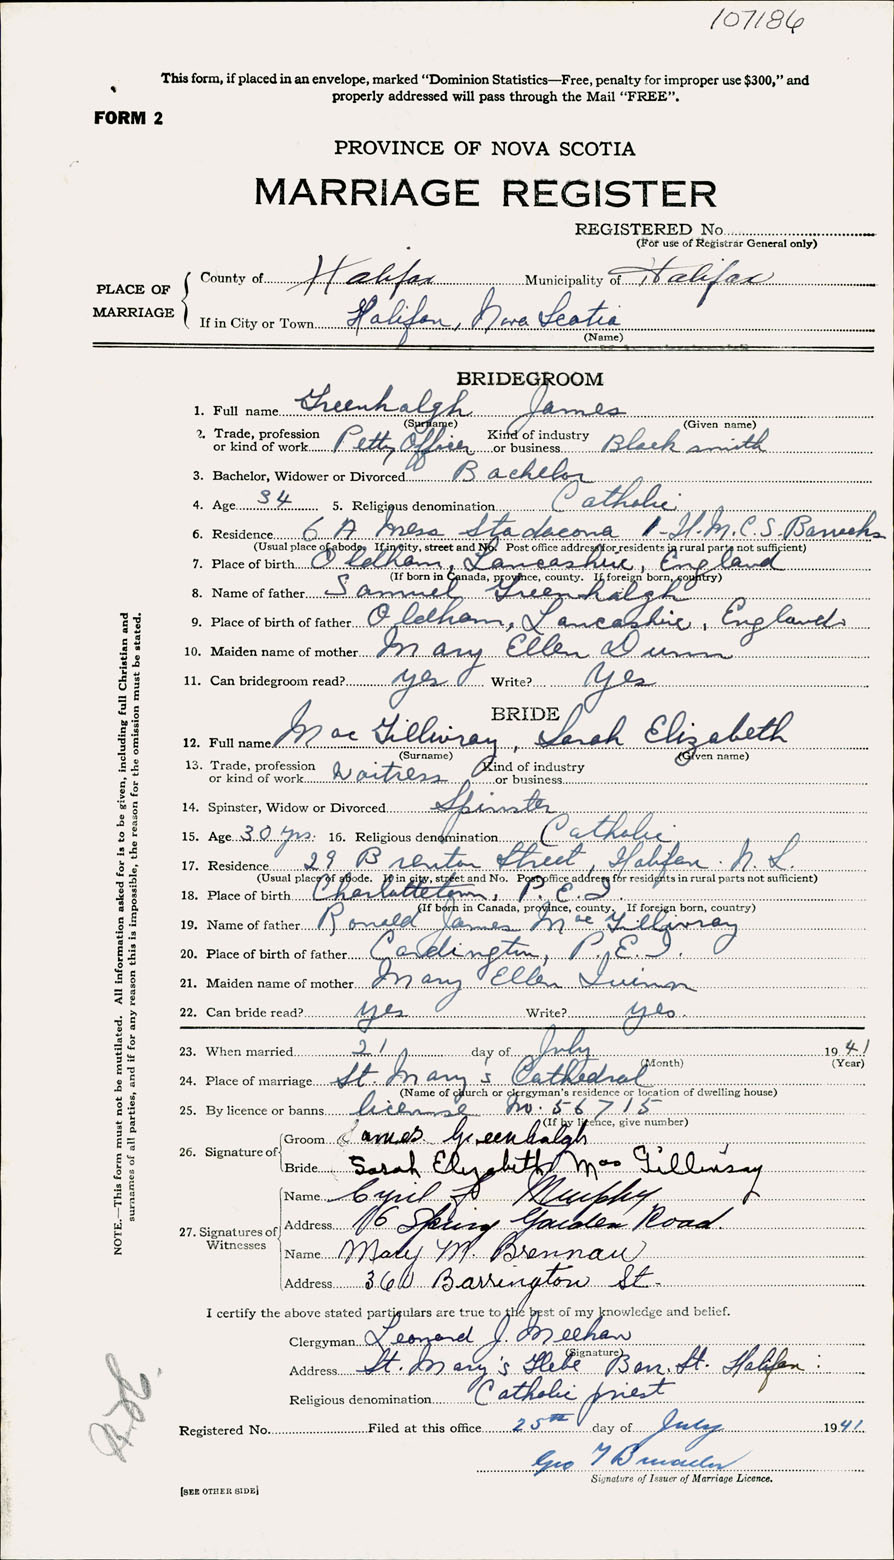 107186
This form, if placed in an envelope, marked "Dominion Statistics—Free, penalty for improper use $300," and
properly addressed will pass through the Mail "FREE".
FORM 2
PROVINCE OF NOVA SCOTIA
MARRIAGE REGISTER
REGISTERED No.
(For use of Registrar General only)
PLACE OF MARRIAGE
County of Halifax Municipality of Halifax
If in City or Town Halifax, Nova Scotia
(Name)
BRIDEGROOM
1. Full name Greenhalgh James
(Surname) (Given name)
2. Trade, profession or kind of work Petty Officer Kind of industry or business Blacksmith
3. Bachelor, Widower or Divorced Bachelor
4. Age 34 5. Religious denomination Catholic
6. Residence 6 A Mess Stadacona 1 H.M.C.S. Barracks
(Usual place of abode. If in city, street and No. Post office address for residents in rural parts not sufficient)
7. Place of birth Oldham, Lancashire, England
(If born in Canada, province, county. If foreign born, country)
8. Name of father Samuel Greenhalgh
9. Place of birth of father Oldham, Lancashire, England
10. Maiden name of mother Mary Ellen Dunn
11. Can bridegroom read? yes Write? Yes
BRIDE
12. Full name MacGillivray, Sarah Elizabeth
(Surname) (Given name)
13. Trade, profession or kind of work Waitress Kind of industry or business
14. Spinster, Widow or Divorced Spinster
15. Age 30 yrs. 16. Religious denomination Catholic
17. Residence 29 Brenton Street, Halifax. N.S.
(Usual place of abode. If in city, street and No. Post office address for residents in rural parts not sufficient)
18. Place of birth Charlottetown, P.E.I.
(If born in Canada, province, county. If foreign born, country)
19. Name of father Ronald James MacGillivray
20. Place of birth of father Cardington, P.E.I.
21. Maiden name of mother Mary Ellen Quinn
22. Can bride read? yes Write? yes.
23. When married 21 day of July 1941
(Month) (Year)
24. Place of marriage St. Mary's Cathedral
(Name of church or clergyman's residence or location of dwelling house)
25. By licence or banns license No. 56715
(If by licence, give number)
26. Signature of
Groom James Greenhalgh
Bride Sarah Elizabeth MacGillivray
27. Signatures of Witnesses
Name Cyril F Murphy
Address 16 Spring Garden Road.
Name Mary M. Brennan
Address 360 Barrington St.
I certify the above stated particulars are true to the best of my knowledge and belief.
Clergyman Leonard J. Meehan
(Signature)
Address St. Mary's Glebe Barr. St. Halifax:
Religious denomination Catholic priest
Registered No. Filed at this office 25th day of July 1941
Geo
Signature of Issuer of Marriage Licence.
[SEE OTHER SIDE]
NOTE.—This form must not be mutilated. All information asked for is to be given, including full Christian and
surnames of all parties, and if for any reason this is impossible, the reason for the omission must be stated.